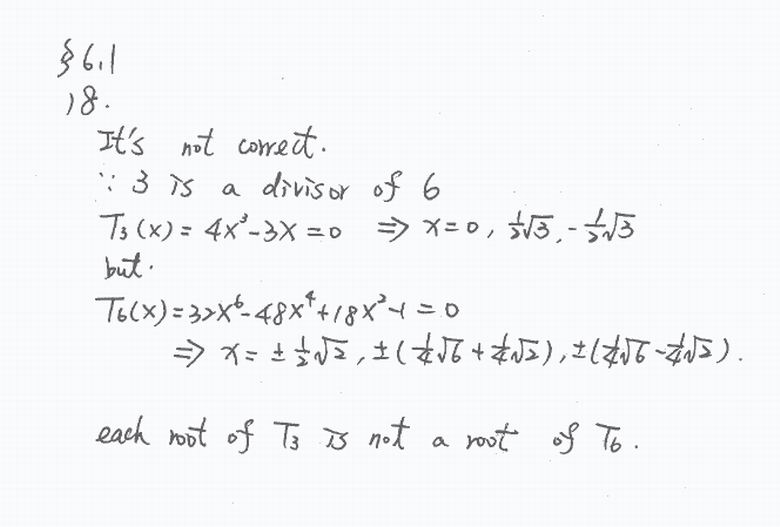 § 6.1
18.
It's not correct.
∵ 3 is a divisor of 6
T₃(x) = 4x³-3x = 0 ⇒ x=0, ½√3, -½√3
but.
T₆(x) = 32x⁶-48x⁴+18x²-1 = 0
⇒ x = ± ½√2, ±(¼√6 + ¼√2), ±(¼√6 - ¼√2).
each root of T₃ is not a root of T₆.